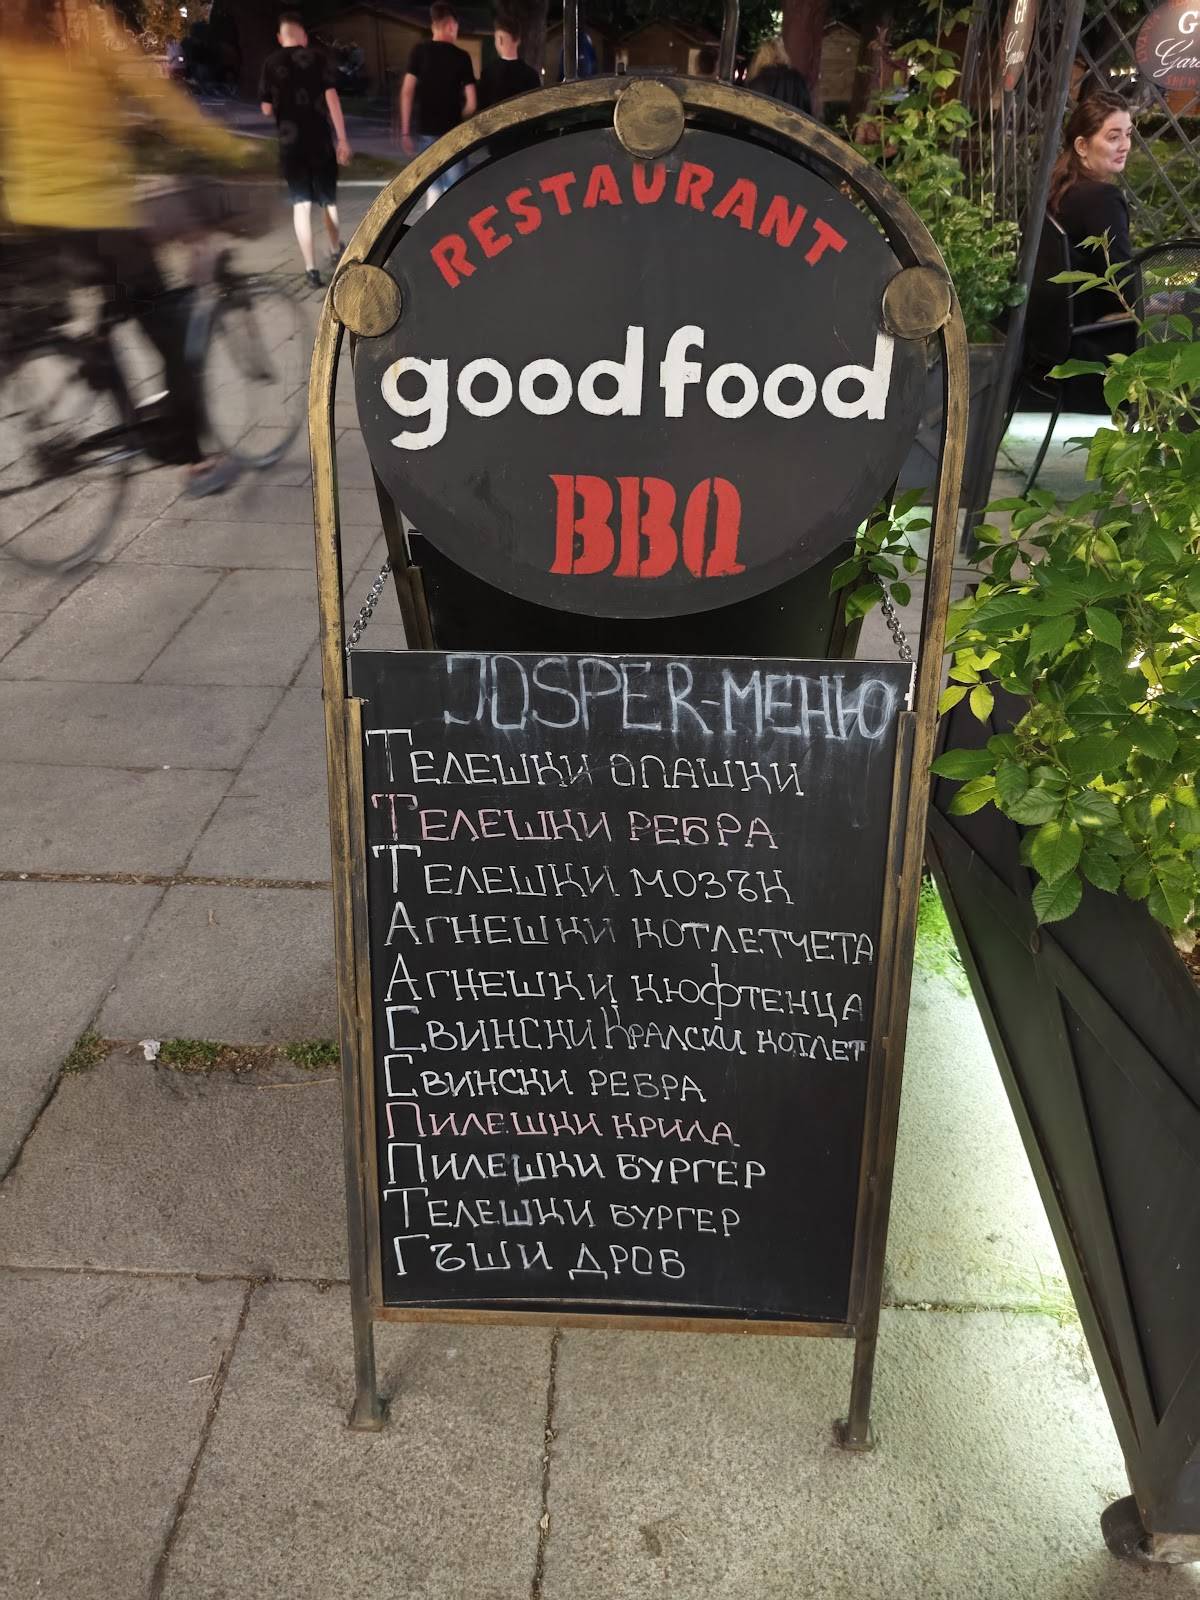 RESTAURANT
good food
BBQ
JOSPER-МЕНЮ
ТЕЛЕШКИ ОПАШКИ
ТЕЛЕШКИ РЕБРА
ТЕЛЕШКИ МОЗЪК
АГНЕШКИ КОТЛЕТЧЕТА
АГНЕШКИ КЮФТЕНЦА
СВИНСКИ КРАЛСКИ КОТЛЕТ
СВИНСКИ РЕБРА
ПИЛЕШКИ КРИЛА
ПИЛЕШКИ БУРГЕР
ТЕЛЕШКИ БУРГЕР
ГЪШИ ДРОБ